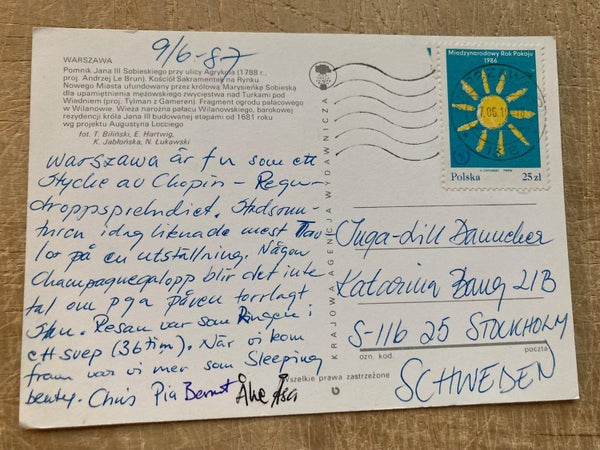 9/6-87
WARSZAWA
Pomnik Jana III Sobieskiego przy ulicy Agrykola (1788 r.,
proj. Andrzej Le Brun). Kościół Sakramentek na Rynku
Nowego Miasta ufundowany przez królową Marysieńkę Sobieską
dla upamiętnienia mężowskiego zwycięstwa nad Turkami pod
Wiedniem (proj. Tylman z Gameren). Fragment ogrodu pałacowego
w Wilanowie. Wieża narożna pałacu Wilanowskiego, barokowej
rezydencji króla Jana III budowanej etapami od 1681 roku
wg projektu Augustyna Locciego
fot. T. Biliński, E. Hartwig,
K. Jabłońska, N. Łukawski
Warszawa är f n som ett
stycke av Chopin - Regn-
droppspreludiet. Stadsom-
idag liknade mest Tav
lor på en utställning. Någon
Champagnegalopp blir det inte
tal om pga påven torrlagt
stan. Resan var som Ringen i
ett svep (36 tim). När vi kom
fram var vi mer som Sleeping
beuty. Chris Pia Bernt Åke Åsa
KRAJOWA AGENCJA WYDAWNICZA
Międzynarodowy Rok Pokoju
1986
Polska 25 zł
Inga-Lill
Katarina Bang 21B
S-116 25 STOCKHOLM
ozn. kod. poczta
SCHWEDEN
Wszelkie prawa zastrzeżone